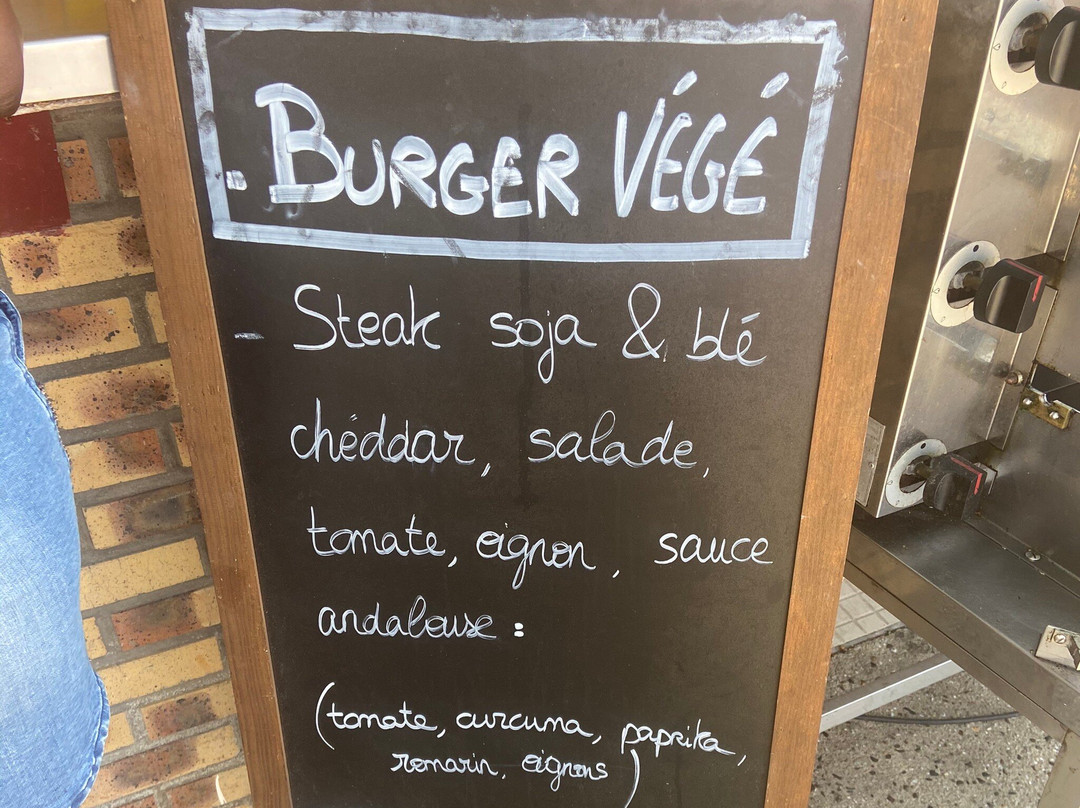 . BURGER VÉGÉ
- Steak soja & blé
chéddar, salade,
tomate, oignon, sauce
andalouse :
(tomate, curcuma, paprika,
romarin, oignons)